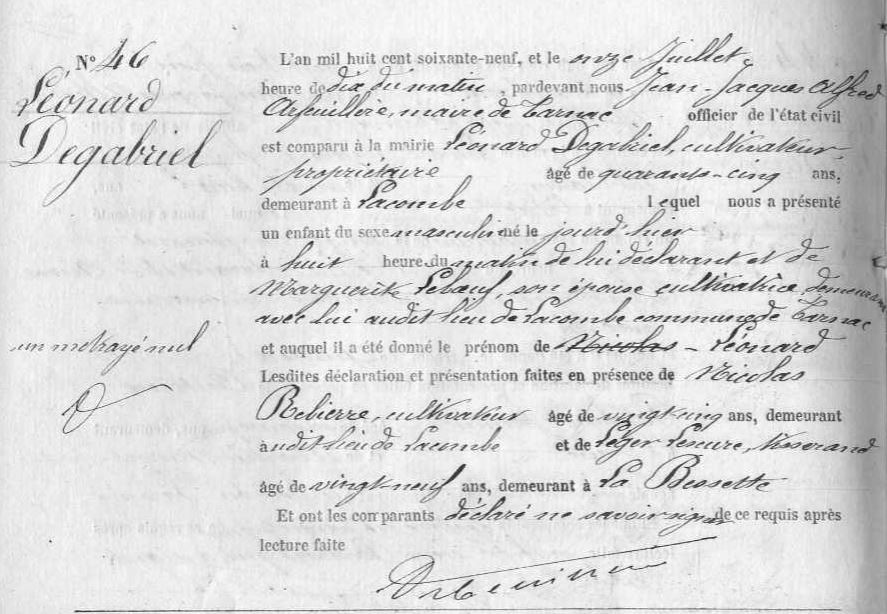 N° 46
Léonard
Degabriel
L'an mil huit cent soixante-neuf, et le onze Juillet
heure de dix du matin, pardevant nous Jean-Jacques Alfred
Arfeuillère, maire de Tarnac officier de l'état civil
est comparu à la mairie Léonard Degabriel, cultivateur
propriétaire âgé de quarante-cinq ans,
demeurant à Lacombe lequel nous a présenté
un enfant du sexe masculin né le jourd'hier
à huit heure du matin de lui déclarant et de
Marguerite Lebœuf, son épouse cultivatrice demeurant
avec lui audit lieu de Lacombe commune de Tarnac
et auquel il a été donné le prénom de Nicolas - Léonard
un mot rayé nul
Lesdites déclaration et présentation faites en présence de Nicolas
Rebierre, cultivateur âgé de vingt cinq ans, demeurant
audit lieu de Lacombe et de Léger Lescure, tisserand
âgé de vingt neuf ans, demeurant à La Bessette
Et ont les comparants déclaré ne savoir signer de ce requis après
lecture faite